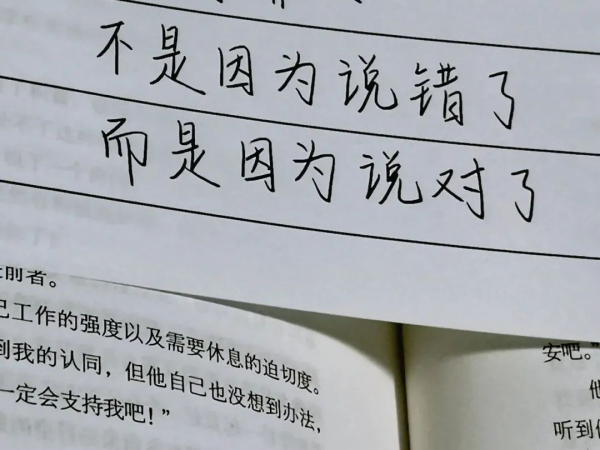 不是因为说错了
而是因为说对了
前者。
己工作的强度以及需要休息的迫切度。
到我的认同，但他自己也没想到办法，
一定会支持我吧！”
安吧。”
他
听到